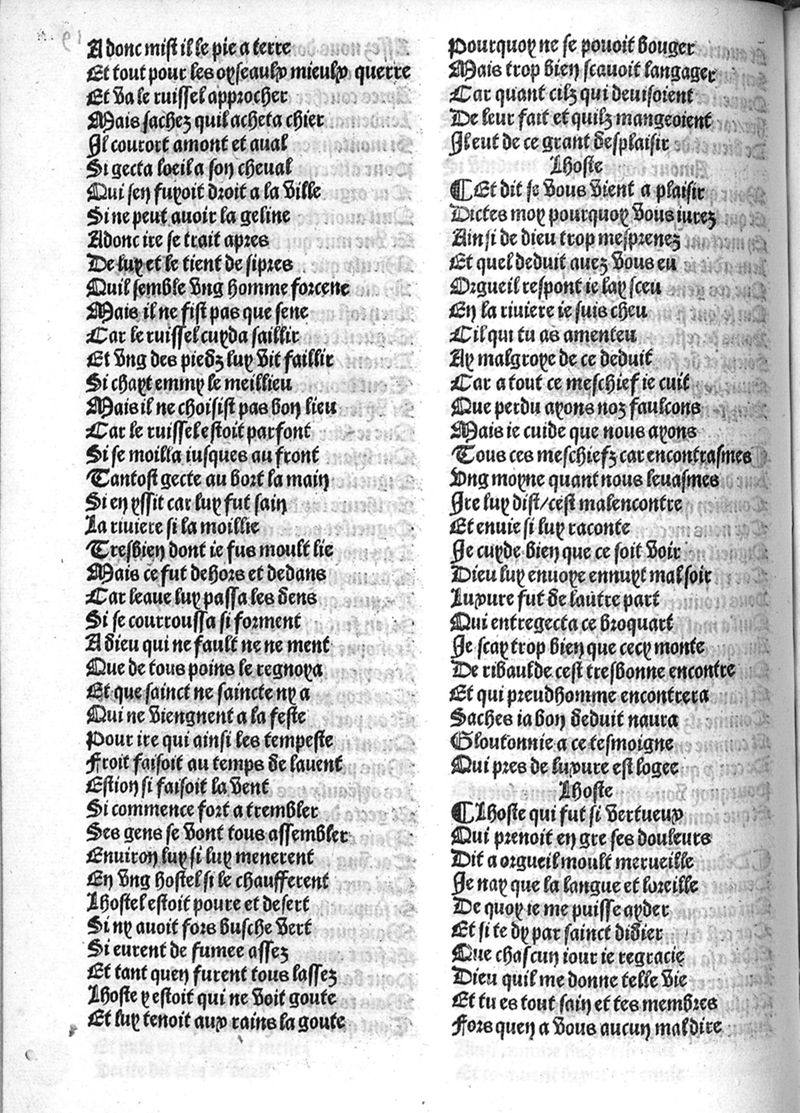 Adonc mist il le pie a terre
Et tout pour les oyseaulx mieulx querre
Et va le ruissel approcher
Mais sachez quil acheta chier
Il courort amont et aual
Si gecta loeil a son cheual
Qui sen fuyoit droit a la ville
Si ne peut auoir la geline
Adonc ire se trait apres
De luy et le tient de si pres
Quil semble vng homme forcene
Mais il ne fist pas que sene
Car le ruissel cuyda saillir
Et vng des piedz luy vit faillir
Si chayt emmy le meillieu
Mais il ne choisist pas bon lieu
Car le ruissel estoit parfont
Si se moilla iusques au front
Tantost gecte au bort la main
Si en yssit car luy fut sain
La riuiere si la moillie
Tresbien dont ie fus moult lie
Mais ce fut dehors et dedans
Car leaue luy passa les dens
Si se courroussa si forment
A dieu qui ne fault ne ne ment
Que de tous poins le regnoya
Et que sainct ne saincte ny a
Qui ne viengnent a la feste
Pour ire qui ainsi les tempeste
Froit faisoit au temps de lauent
Estion si faisoit la vent
Si commence fort a trembler
Ses gens se vont tous assembler
Enuiron luy si luy menerent
En vng hostel si le chaufferent
Lhostel estoit poure et desert
Si ny auoit fors busche vert
Si eurent de fumee assez
Et tant quen furent tous lassez
Lhoste y estoit qui ne voit goute
Et luy tenoit aux rains la goute
Pourquoy ne se pouoit bouger
Mais trop bien scauoit langager
Car quant cilz qui deuisoient
De leur fait et quilz mangeoient
Il eut de ce grant desplaisir
Lhoste
¶Et dit se vous vient a plaisir
Dictes moy pourquoy vous iurez
Ainsi de dieu trop mesprenez
Et quel deduit auez vous eu
Orgueil respont ie lay sceu
En la riuiere ie suis cheu
Cil qui tu as amenteu
Ay malgroye de ce deduit
Car a tout ce meschief ie cuit
Que perdu ayons noz faulcons
Mais ie cuide que nous ayons
Tous ces meschiefz car encontrasmes
Vng moyne quant nous leuasmes
Ire luy dist/cest malencontre
Et enuie si luy raconte
Je cuyde bien que ce soit voir
Dieu luy enuoye ennuyt mal soir
Luxure fut de lautre part
Qui entregecta ce broquart
Je scay trop bien que cecy monte
De ribaulde cest tresbonne encontre
Et qui preudhomme encontrera
Saches ia bon deduit naura
Gloutonnie a ce tesmoigne
Qui pres de luxure est logee
Lhoste
¶Lhoste qui fut si vertueux
Qui prenoit en gre ses douleurs
Dit a orgueil moult merueille
Je nay que la langue et loreille
De quoy ie me puisse ayder
Et si te dy par sainct didier
Que chascun iour ie regracie
Dieu quil me donne telle vie
Et tu es tout sain et tes membres
Fors quen a vous aucun mal dire